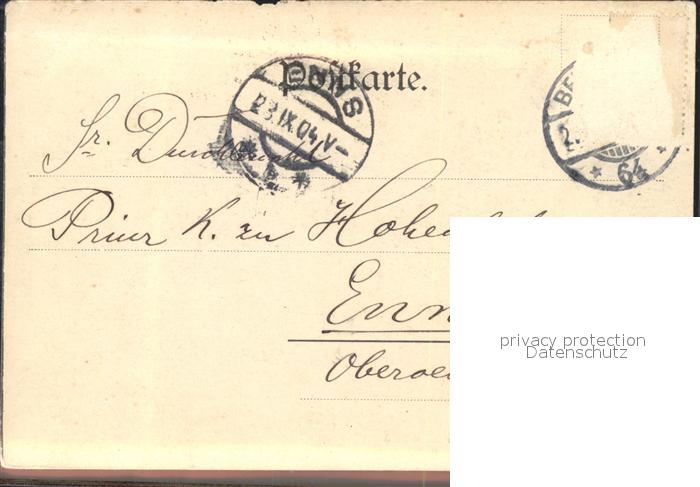 Postkarte.
ENNS
23.IX.04.V-
* b *
BE
2.
* 64 *
Sr. Durchlaucht
Prinz K. zu Hohe
Enn
Oberoe
privacy protection
Datenschutz